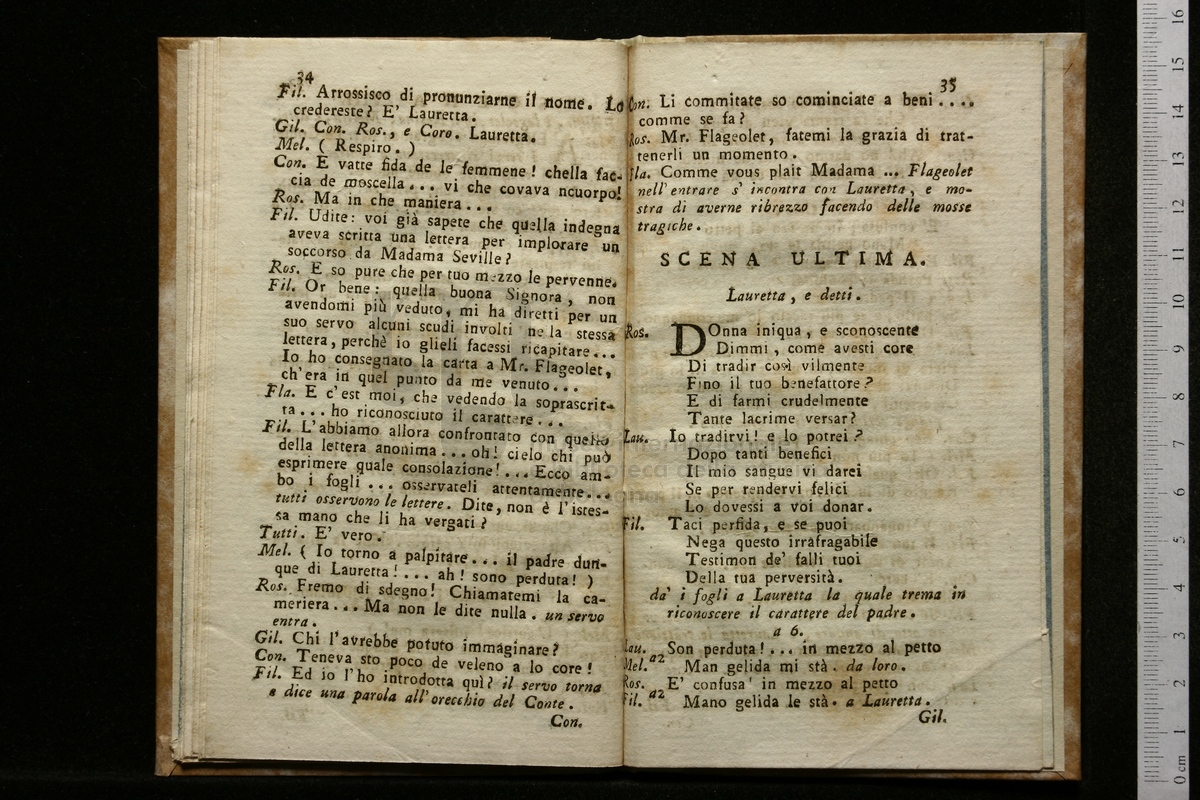 34
Fil. Arrossisco di pronunziarne il nome. Lo
credereste? E' Lauretta.
Gil. Con. Ros., e Coro. Lauretta.
Mel. ( Respiro. )
Con. E vatte fida de le femmene! chella fac-
cia de moscella... vi che covava ncuorpo!
Ros. Ma in che maniera...
Fil. Udite: voi già sapete che quella indegna
aveva scritta una lettera per implorare un
soccorso da Madama Seville?
Ros. E so pure che per tuo mezzo le pervenne.
Fil. Or bene: quella buona Signora, non
avendomi più veduto, mi ha diretti per un
suo servo alcuni scudi involti nela stessa
lettera, perchè io glieli facessi ricapitare...
Io ho consegnato la carta a Mr. Flageolet,
ch'era in quel punto da me venuto...
Fla. E c'est moi, che vedendo la soprascrit-
ta... ho riconosciuto il carattere...
Fil. L'abbiamo allora confrontato con quello
della lettera anonima... oh! cielo chi può
esprimere quale consolazione!... Ecco am-
bo i fogli... osservateli attentamente...
tutti osservono le lettere. Dite, non è l'istes-
sa mano che li ha vergati?
Tutti. E' vero.
Mel. ( Io torno a palpitare... il padre dun-
que di Lauretta!... ah! sono perduta! )
Ros. Fremo di sdegno! Chiamatemi la ca-
meriera... Ma non le dite nulla. un servo
entra.
Gil. Chi l'avrebbe potuto immaginare?
Con. Teneva sto poco de veleno a lo core!
Fil. Ed io l'ho introdotta quì? il servo torna
e dice una parola all'orecchio del Conte.
Con.
35
Con. Li commitate so cominciate a beni....
comme se fa?
Ros. Mr. Flageolet, fatemi la grazia di trat-
tenerli un momento.
Fla. Comme vous plait Madama ... Flageolet
nell'entrare s' incontra con Lauretta, e mo-
stra di averne ribrezzo facendo delle mosse
tragiche.
SCENA ULTIMA.
Lauretta, e detti.
Ros. DOnna iniqua, e sconoscente
Dimmi, come avesti core
Di tradir così vilmente
Fino il tuo benefattore?
E di farmi crudelmente
Tante lacrime versar?
Lau. Io tradirvi! e lo potrei?
Dopo tanti benefici
Il mio sangue vi darei
Se per rendervi felici
Lo dovessi a voi donar.
Fil. Taci perfida, e se puoi
Nega questo irrafragabile
Testimon de' falli tuoi
Della tua perversità.
da' i fogli a Lauretta la quale trema in
riconoscere il carattere del padre.
a 6.
Lau. Son perduta!... in mezzo al petto
Mel. a2 Man gelida mi stà. da loro.
Ros. E' confusa' in mezzo al petto
Fil. a2 Mano gelida le stà. a Lauretta.
Gil.
0 cm 1 2 3 4 5 6 7 8 9 10 11 12 13 14 15 16